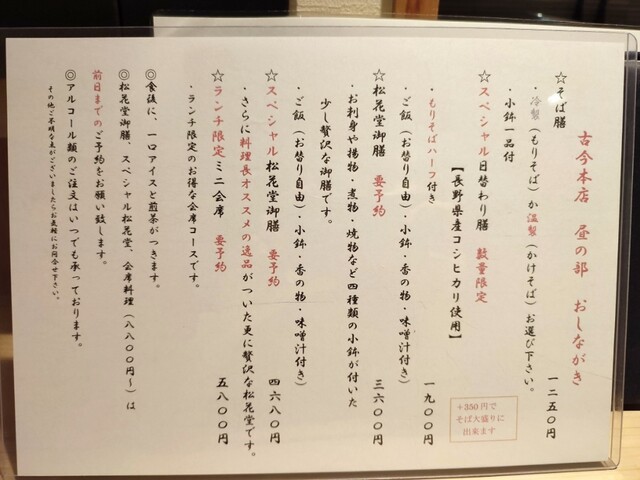 古今本店　昼の部　おしながき
☆そば膳　一二五〇円
・冷製（もりそば）か温製（かけそば）お選び下さい。
・小鉢一品付
+350円で
そば大盛りに
出来ます
☆スペシャル日替わり膳　数量限定　一九〇〇円
【長野県産コシヒカリ使用】
・もりそばハーフ付き
・ご飯（お替り自由）・小鉢・香の物・味噌汁付き）
☆松花堂御膳　要予約　三六〇〇円
・お刺身や揚物・煮物・焼物など四種類の小鉢が付いた
少し贅沢な御膳です。
・ご飯（お替り自由）・小鉢・香の物・味噌汁付き）
☆スペシャル松花堂御膳　要予約　四六八〇円
・さらに料理長オススメの逸品がついた更に贅沢な松花堂です。
☆ランチ限定ミニ会席　要予約　五八〇〇円
・ランチ限定のお得な会席コースです。
◎食後に、一口アイスと煎茶がつきます。
◎松花堂御膳、スペシャル松花堂、会席料理（八八〇〇円～）は
前日までのご予約をお願い致します。
◎アルコール類のご注文はいつでも承っております。
その他ご不明な点がございましたらお気軽にお問合せ下さい。